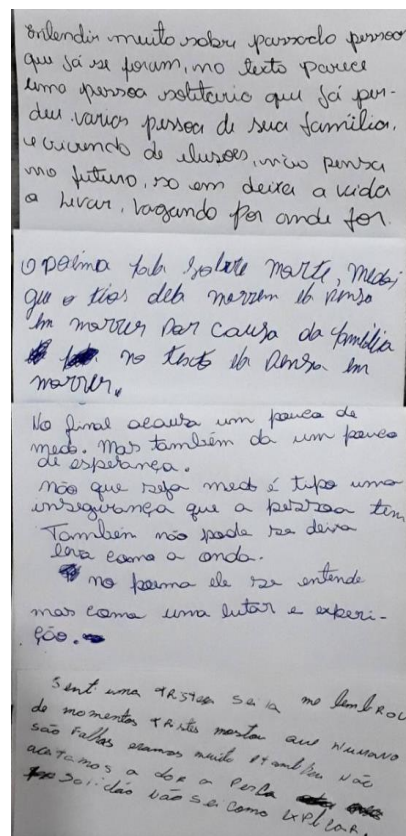 entendir muito sobre passado pessoa
que já se foram, no texto parece
uma pessoa solitario que já per-
deu varias pessoa de sua família,
e vivendo de ilusões, não pensa
no futuro, so em deixa a vida
a levar, vagando por onde for.
o poema fala sobre morte, medo
que o tios dela morrem ela pensa
em morrer por causa da família
no texto ela pensa em
morrer.
No final acausa um pouco de
medo. Mas também da um pouco
de esperança.
não que seja medo é tipo uma
insegurança que a pessoa tem
Também não pode se deixa
leva como a onda.
no poema ele se entende
mas como uma lutar e experi-
ção.
Senti uma tristeza sei la me lembrou
de momentos tristes mostou que Humano
são falhas eramos muito também não
aceitamos a dor a perca
solidão não sei como explicar.